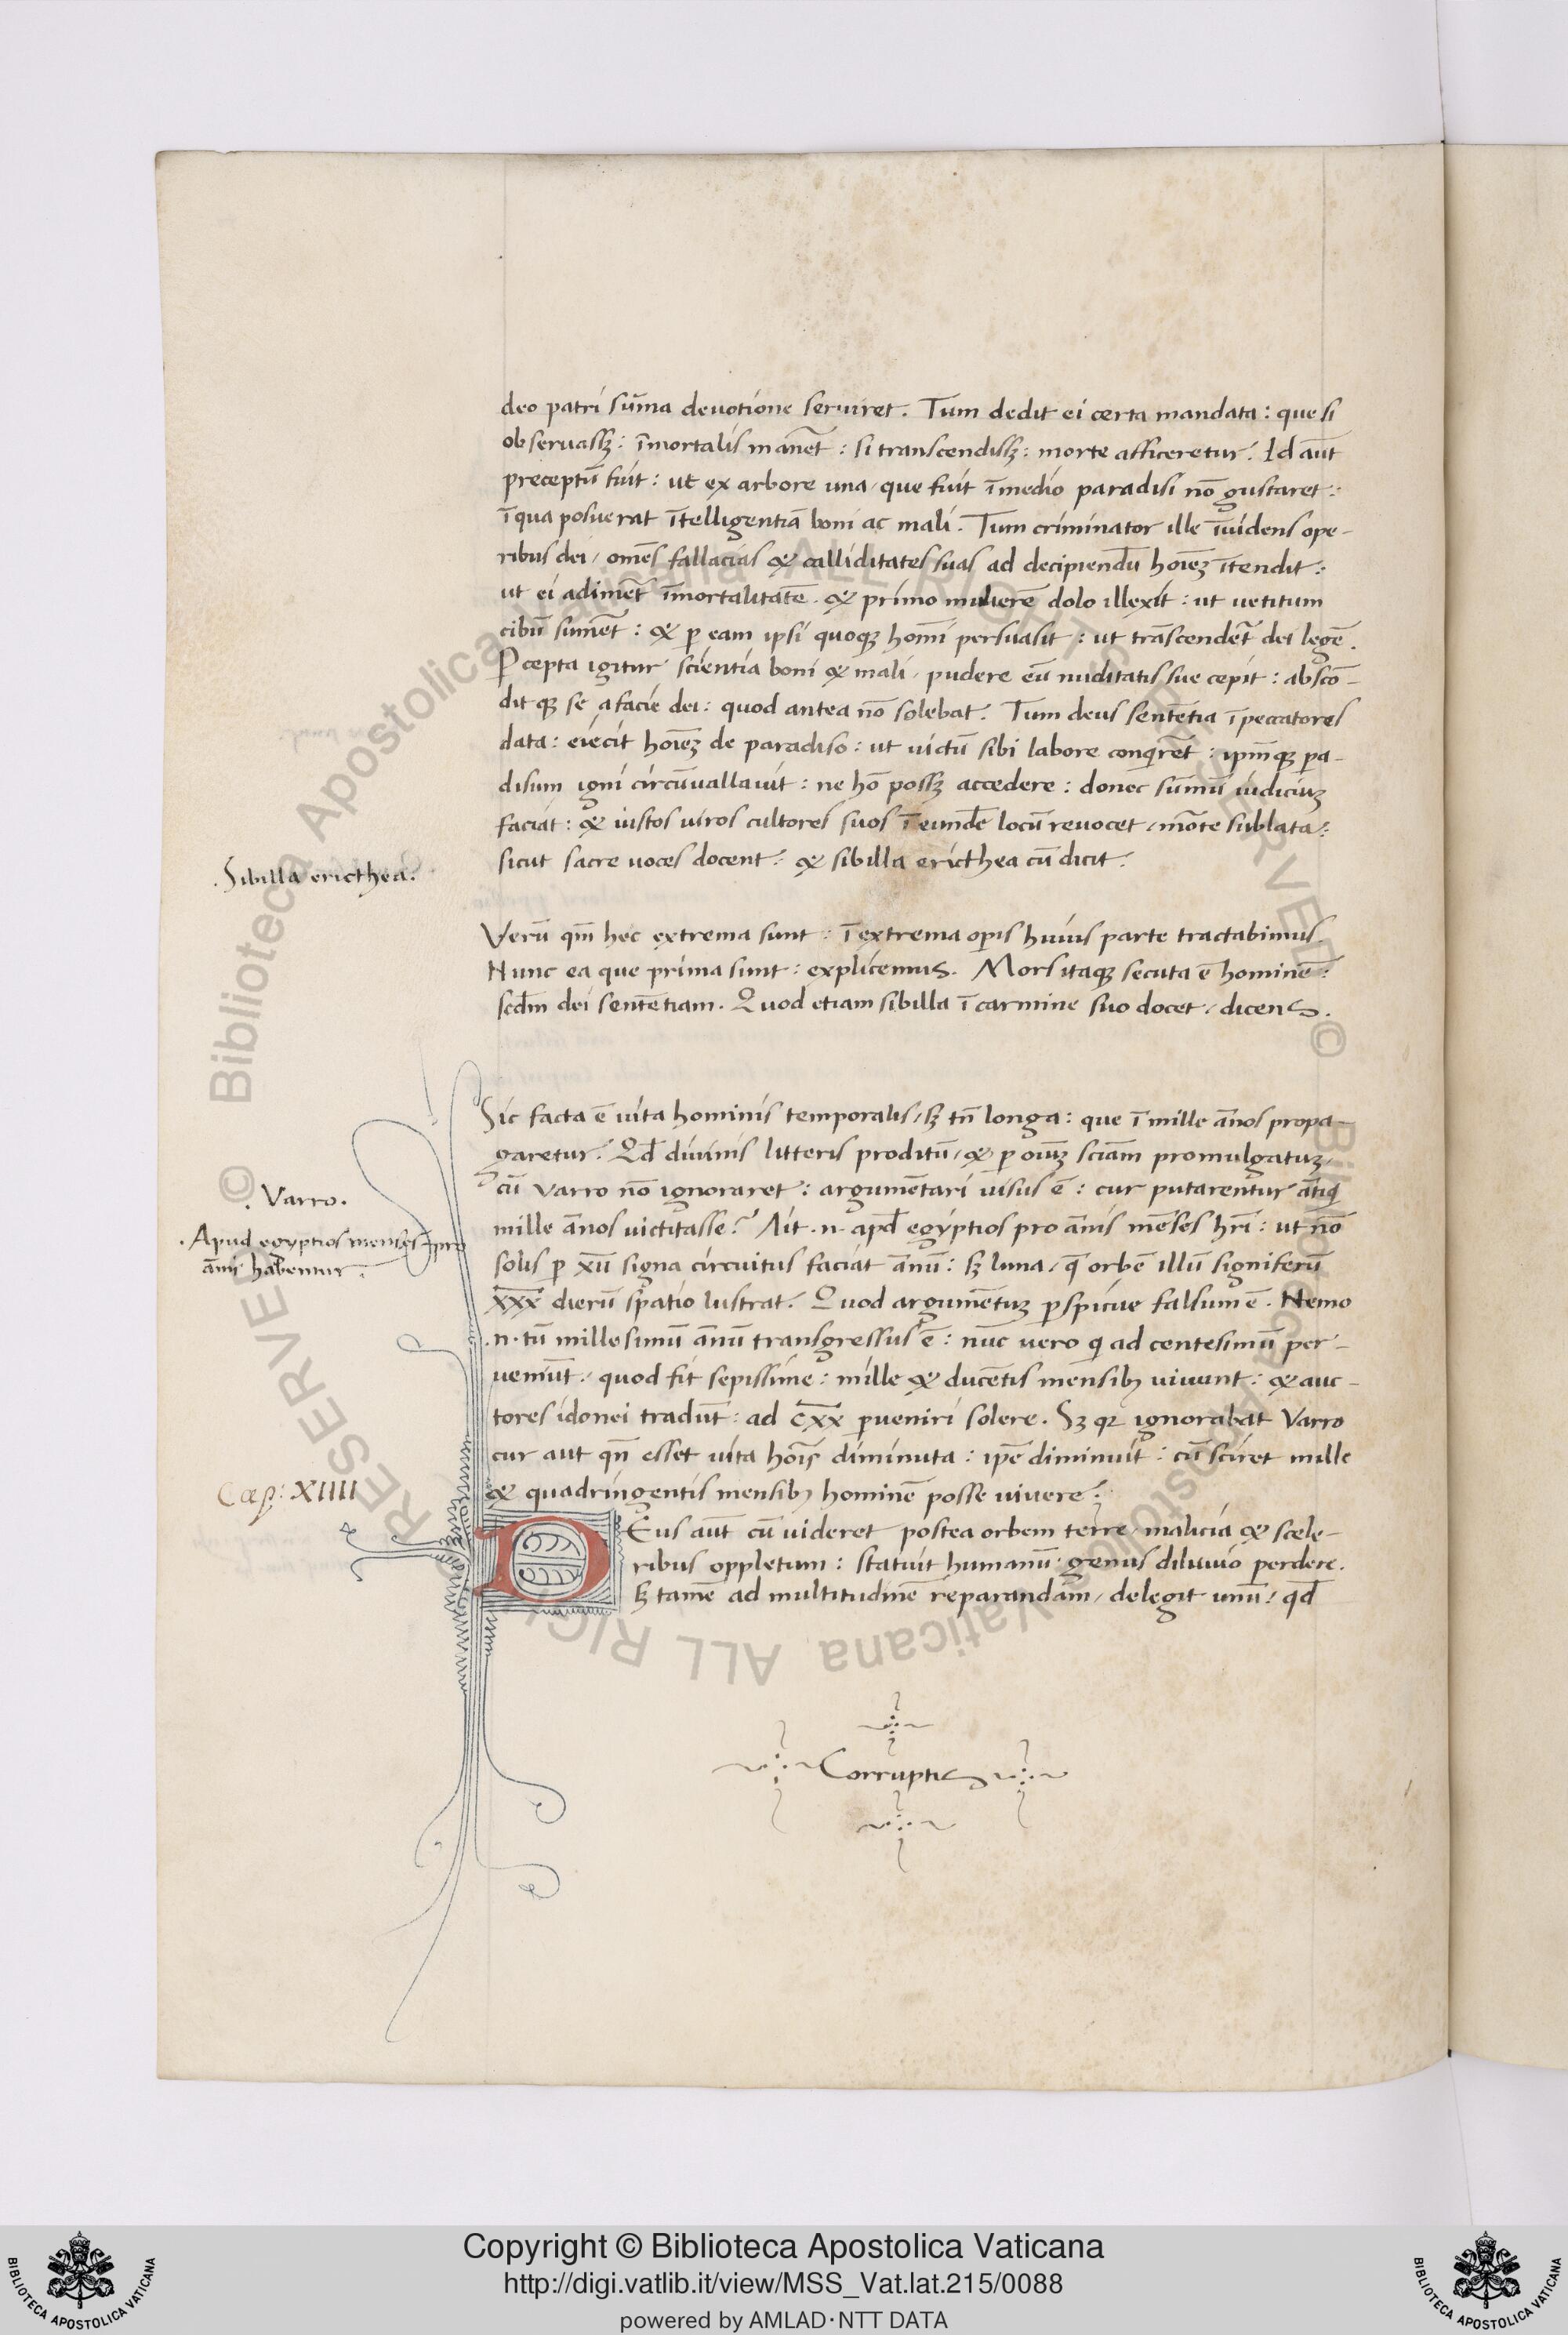 deo patri sūma deuotione seruiret. Tum dedit ei certa mandata: que si
obseruassꝫ: īmortalis manēt: si transcendissꝫ: morte afficeretur. Id aūt
preceptū fuit: ut ex arbore una, que fuit ī medio paradisi nō gustaret:
ī qua posuerat ītelligentiā boni ac mali. Tum criminator ille īuidens ope-
ribus dei, omēs fallacias & calliditates suas ad decipiendū hoīeꝫ ītendit:
ut ei adimēt īmortalitatē. & primo mulierē dolo illexit: ut uetitum
cibū sumēt: & ꝑ eam ipsi quoqꝫ homī persuasit: ut trāscendēt dei legē.
Ꝑcepta igitur scientia boni & mali, pudere eū nuditatis sue cepit: abscō-
ditqꝫ se a facie dei: quod antea nō solebat. Tum deus sentētia ī peccatores
data: eiecit hoīeꝫ de paradiso: ut uictū sibi labore conqirēt: ipm̄qꝫ pa-
disum igni circūuallauit: ne hō possꝫ accedere: donec sūmū iudiciuꝫ
faciat: & iustos uiros cultores suos ī eundē locū reuocet, mōte sublata:
sicut sacre uoces docent: & sibilla ericthea cū dicit.
.Sibilla ericthea.
Verū qm̄ hec extrema sunt: ī extrema opis huius parte tractabimus.
Nunc ea que prima sunt: explicemus. Mors itaqꝫ secuta ē hominē:
scdm̄ dei sentētiam. Quod etiam sibilla ī carmine suo docet, dicens.
Sic facta ē uita hominis temporalis, sꝫ tn̄ longa: que ī mille ānos propa-
garetur. Qd̄ diuinis litteris proditū, & ꝑ oīuꝫ sciām promulgatuꝫ,
cū Varro nō ignoraret: argumētari uisus ē: cur putarentur ātiqi
.Varro.
mille ānos uictitasse? Ait .n. apd̄ egyptios pro ānis mēses hr̄i: ut nō
.Apud egyptios menses pro
ānis habentur.
solis ꝑ xıı̄ signa circuitus faciat ānū: sꝫ luna, q̄ orbē illū signiferū
x̄x̄x̄ dierū spatio lustrat. Quod argumētuꝫ ꝑspicue falsum ē. Nemo
.n. tū millesimū ānū transgressus ē: nūc uero qi ad centesimū per-
ueniūt, quod fit sepissime: mille & ducētis mensibꝫ uiuunt: & auc-
tores idonei tradūt: ad c̄x̄x̄ ꝑueniri solere. Sꝫ qꝛ ignorabat Varro
cur aut qn̄ esset uita hoīs diminuta: ipē diminuit: cū sciret mille
& quadringentis mensibꝫ hominē posse uiuere.
Cap: XIIII
DEus aūt cū uideret postea orbem terre, malicia & scele-
ribus oppletum: statuit humanū genus diluuio perdere.
Sꝫ tamē ad multitudinē reparandam, delegit unū, qd̄
Corruptis
Copyright © Biblioteca Apostolica Vaticana
http://digi.vatlib.it/view/MSS_Vat.lat.215/0088
powered by AMLAD·NTT DATA